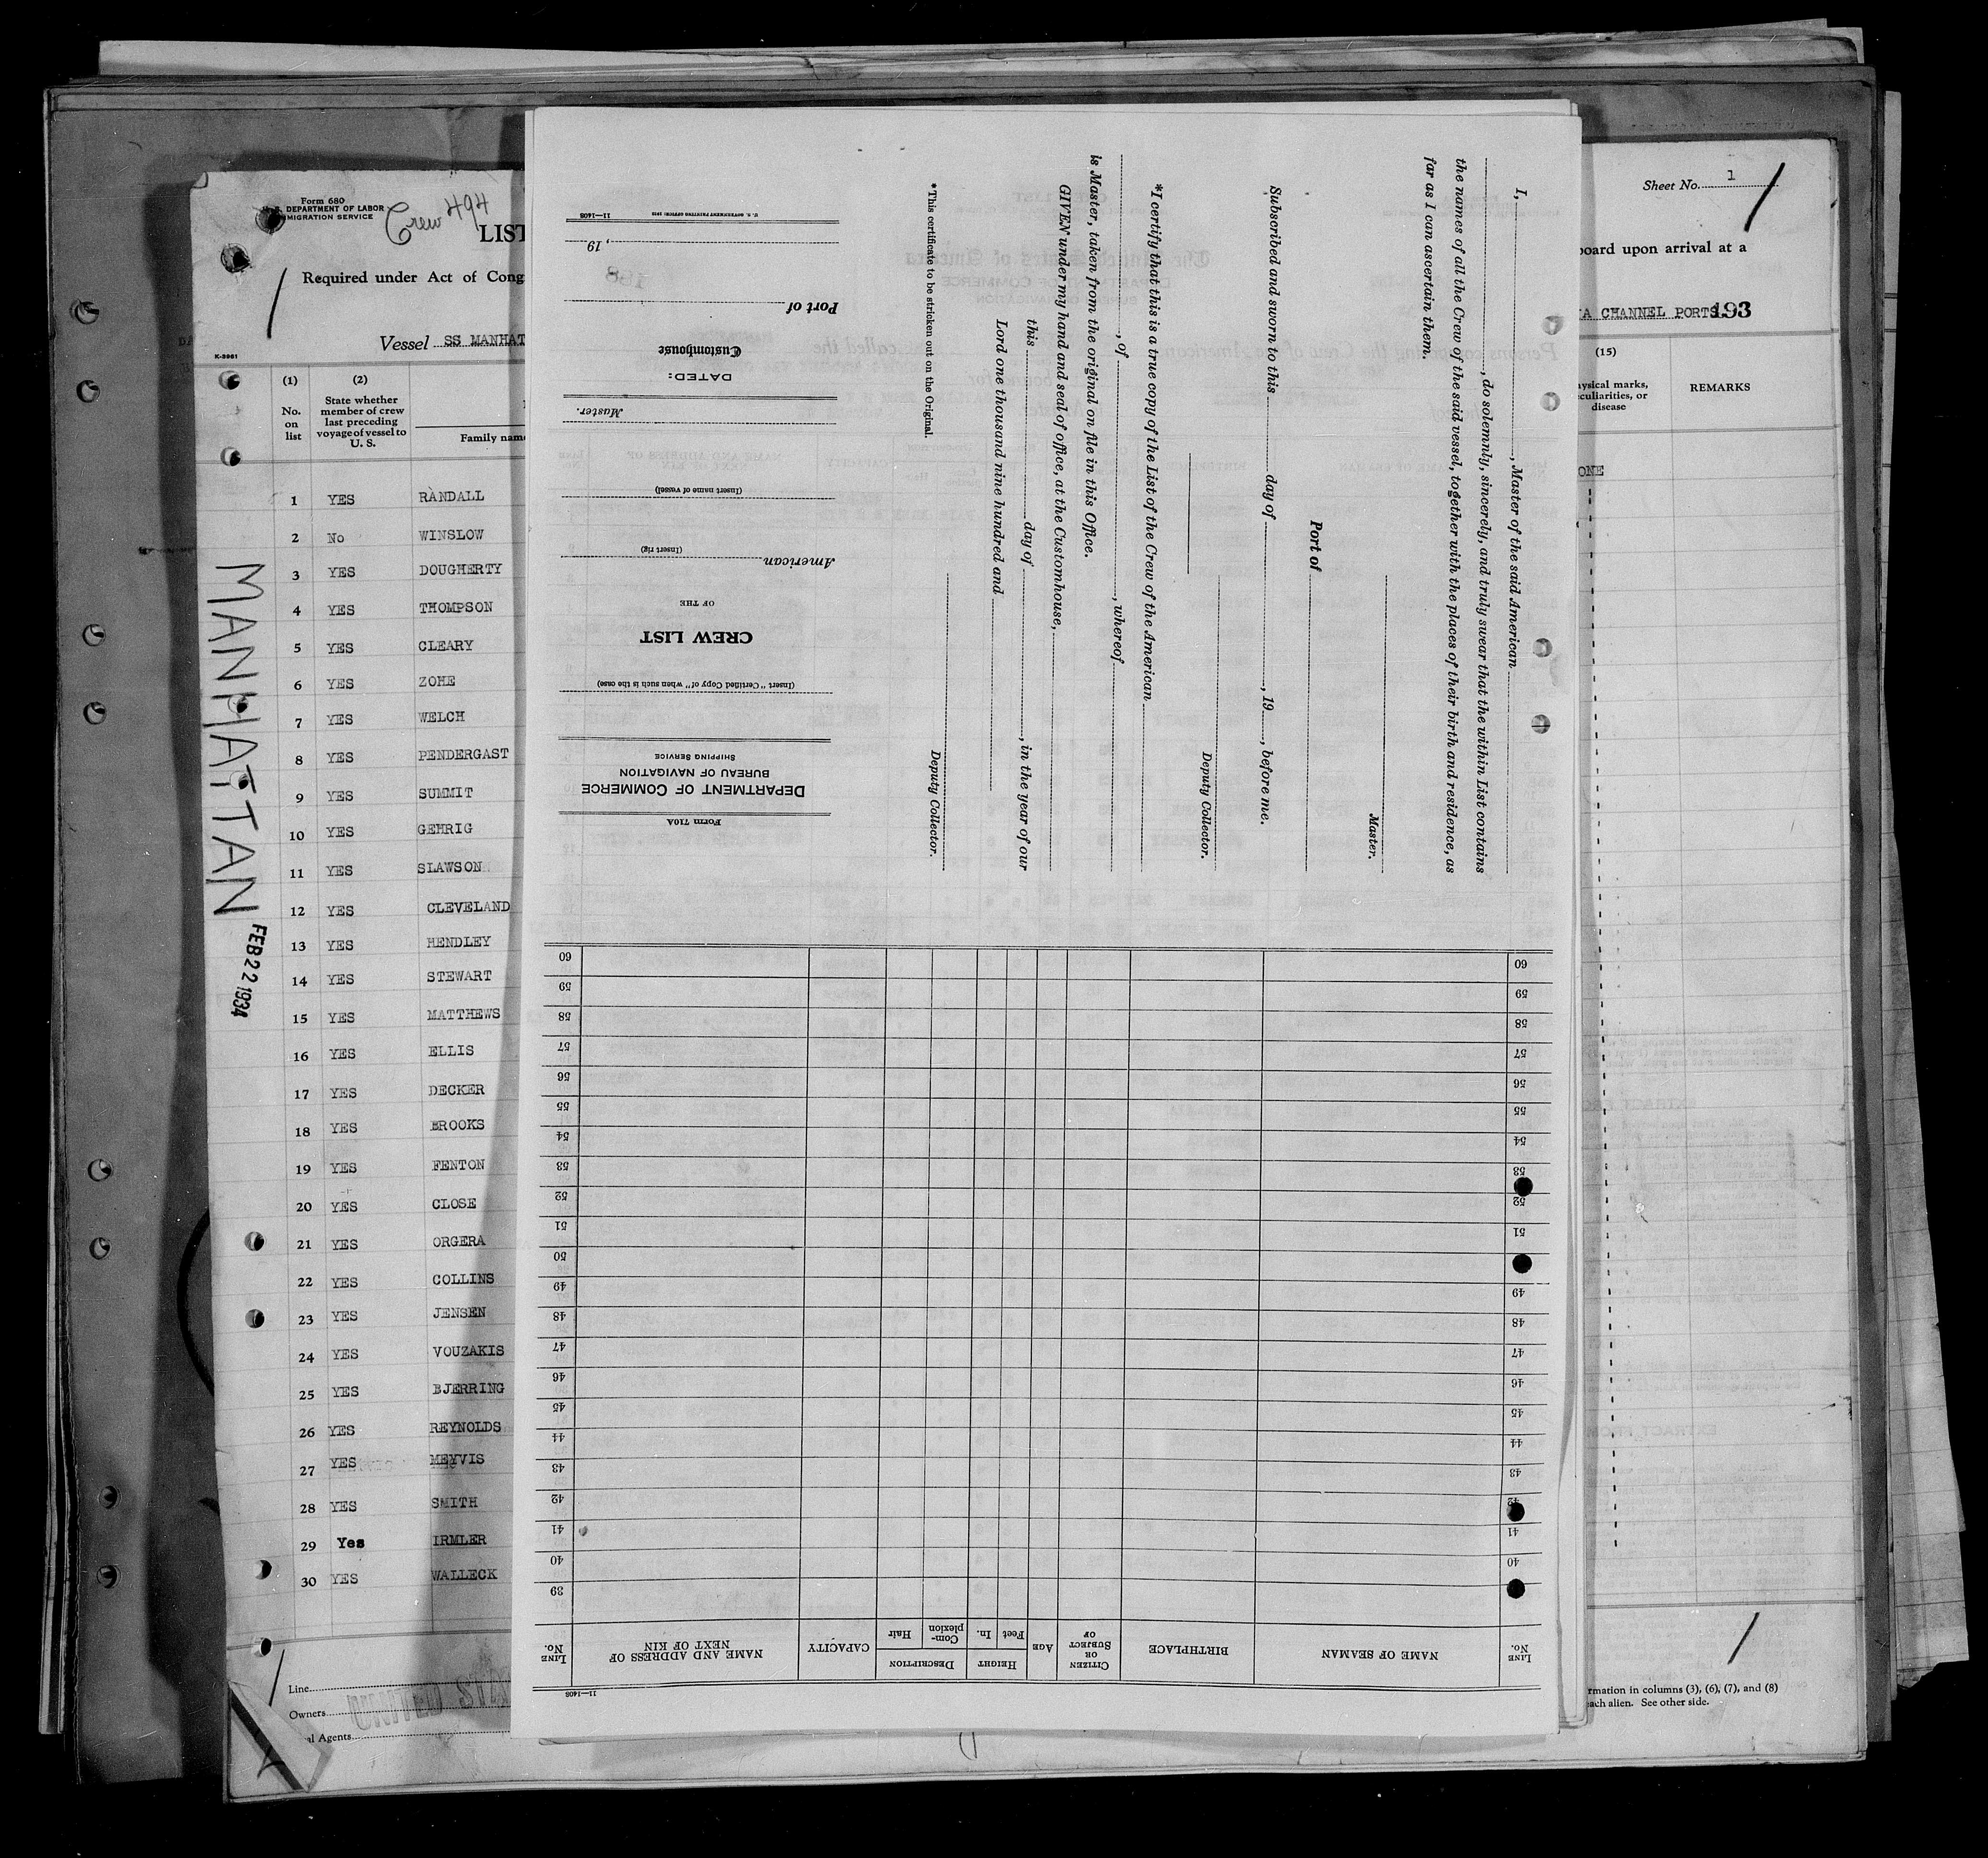 Form 680
DEPARTMENT OF LABOR
MIGRATION SERVICE
Crew 494
LIST
Required under Act of Cong
Vessel SS MANHAT
K-3961
(1)
No.
on
list
(2)
State whether
member of crew
last preceding
voyage of vessel to
U. S.
Family name
1 YES RANDALL
2 No WINSLOW
3 YES DOUGHERTY
4 YES THOMPSON
5 YES CLEARY
6 YES ZOHE
7 YES WELCH
8 YES PENDERGAST
9 YES SUMMIT
10 YES GEHRIG
11 YES SLAWSON
12 YES CLEVELAND
13 YES HENDLEY
14 YES STEWART
15 YES MATTHEWS
16 YES ELLIS
17 YES DECKER
18 YES BROOKS
19 YES FENTON
20 YES CLOSE
21 YES ORGERA
22 YES COLLINS
23 YES JENSEN
24 YES VOUZAKIS
25 YES BJERRING
26 YES REYNOLDS
27 YES MEYVIS
28 YES SMITH
29 Yes IRMLER
30 YES WALLECK
Line
Owners
al Agents
UNITED STA
MANHATTAN
FEB 22 1934
Form 710A
DEPARTMENT OF COMMERCE
BUREAU OF NAVIGATION
SHIPPING SERVICE
(Insert "Certified Copy of" when such is the case)
CREW LIST
OF THE
American
(Insert rig)
(Insert name of vessel)
Master.
DATED:
Customhouse
Port of
, 19
U. S. GOVERNMENT PRINTING OFFICE
11—1408
I, , Master of the said American
, do solemnly, sincerely, and truly swear that the within List contains
the names of all the Crew of the said vessel, together with the places of their birth and residence, as
far as I can ascertain them.
Master.
Port of
Subscribed and sworn to this day of , 19 , before me.
Deputy Collector.
*I certify that this is a true copy of the List of the Crew of the American
, of , whereof
is Master, taken from the original on file in this Office.
GIVEN under my hand and seal of office, at the Customhouse,
this day of , in the year of our
Lord one thousand nine hundred and
Deputy Collector.
*This certificate to be stricken out on the Original.
11—1408
LINE No.
NAME OF SEAMAN
BIRTHPLACE
CITIZEN OR SUBJECT OF
AGE
HEIGHT
Feet
In.
DESCRIPTION
Complexion
Hair
CAPACITY
NAME AND ADDRESS OF NEXT OF KIN
LINE No.
39
40 40
41 41
42 42
43 43
44 44
45 45
46 46
47 47
48 48
49 49
50
51 51
52 52
53 53
54 54
55 55
56 56
57 57
58 58
59 59
60 60
Sheet No. 1
board upon arrival at a
IA CHANNEL PORTS 193
(15)
ysical marks,
culiarities, or
disease
REMARKS
ONE
rmation in columns (3), (6), (7), and (8)
each alien. See other side.